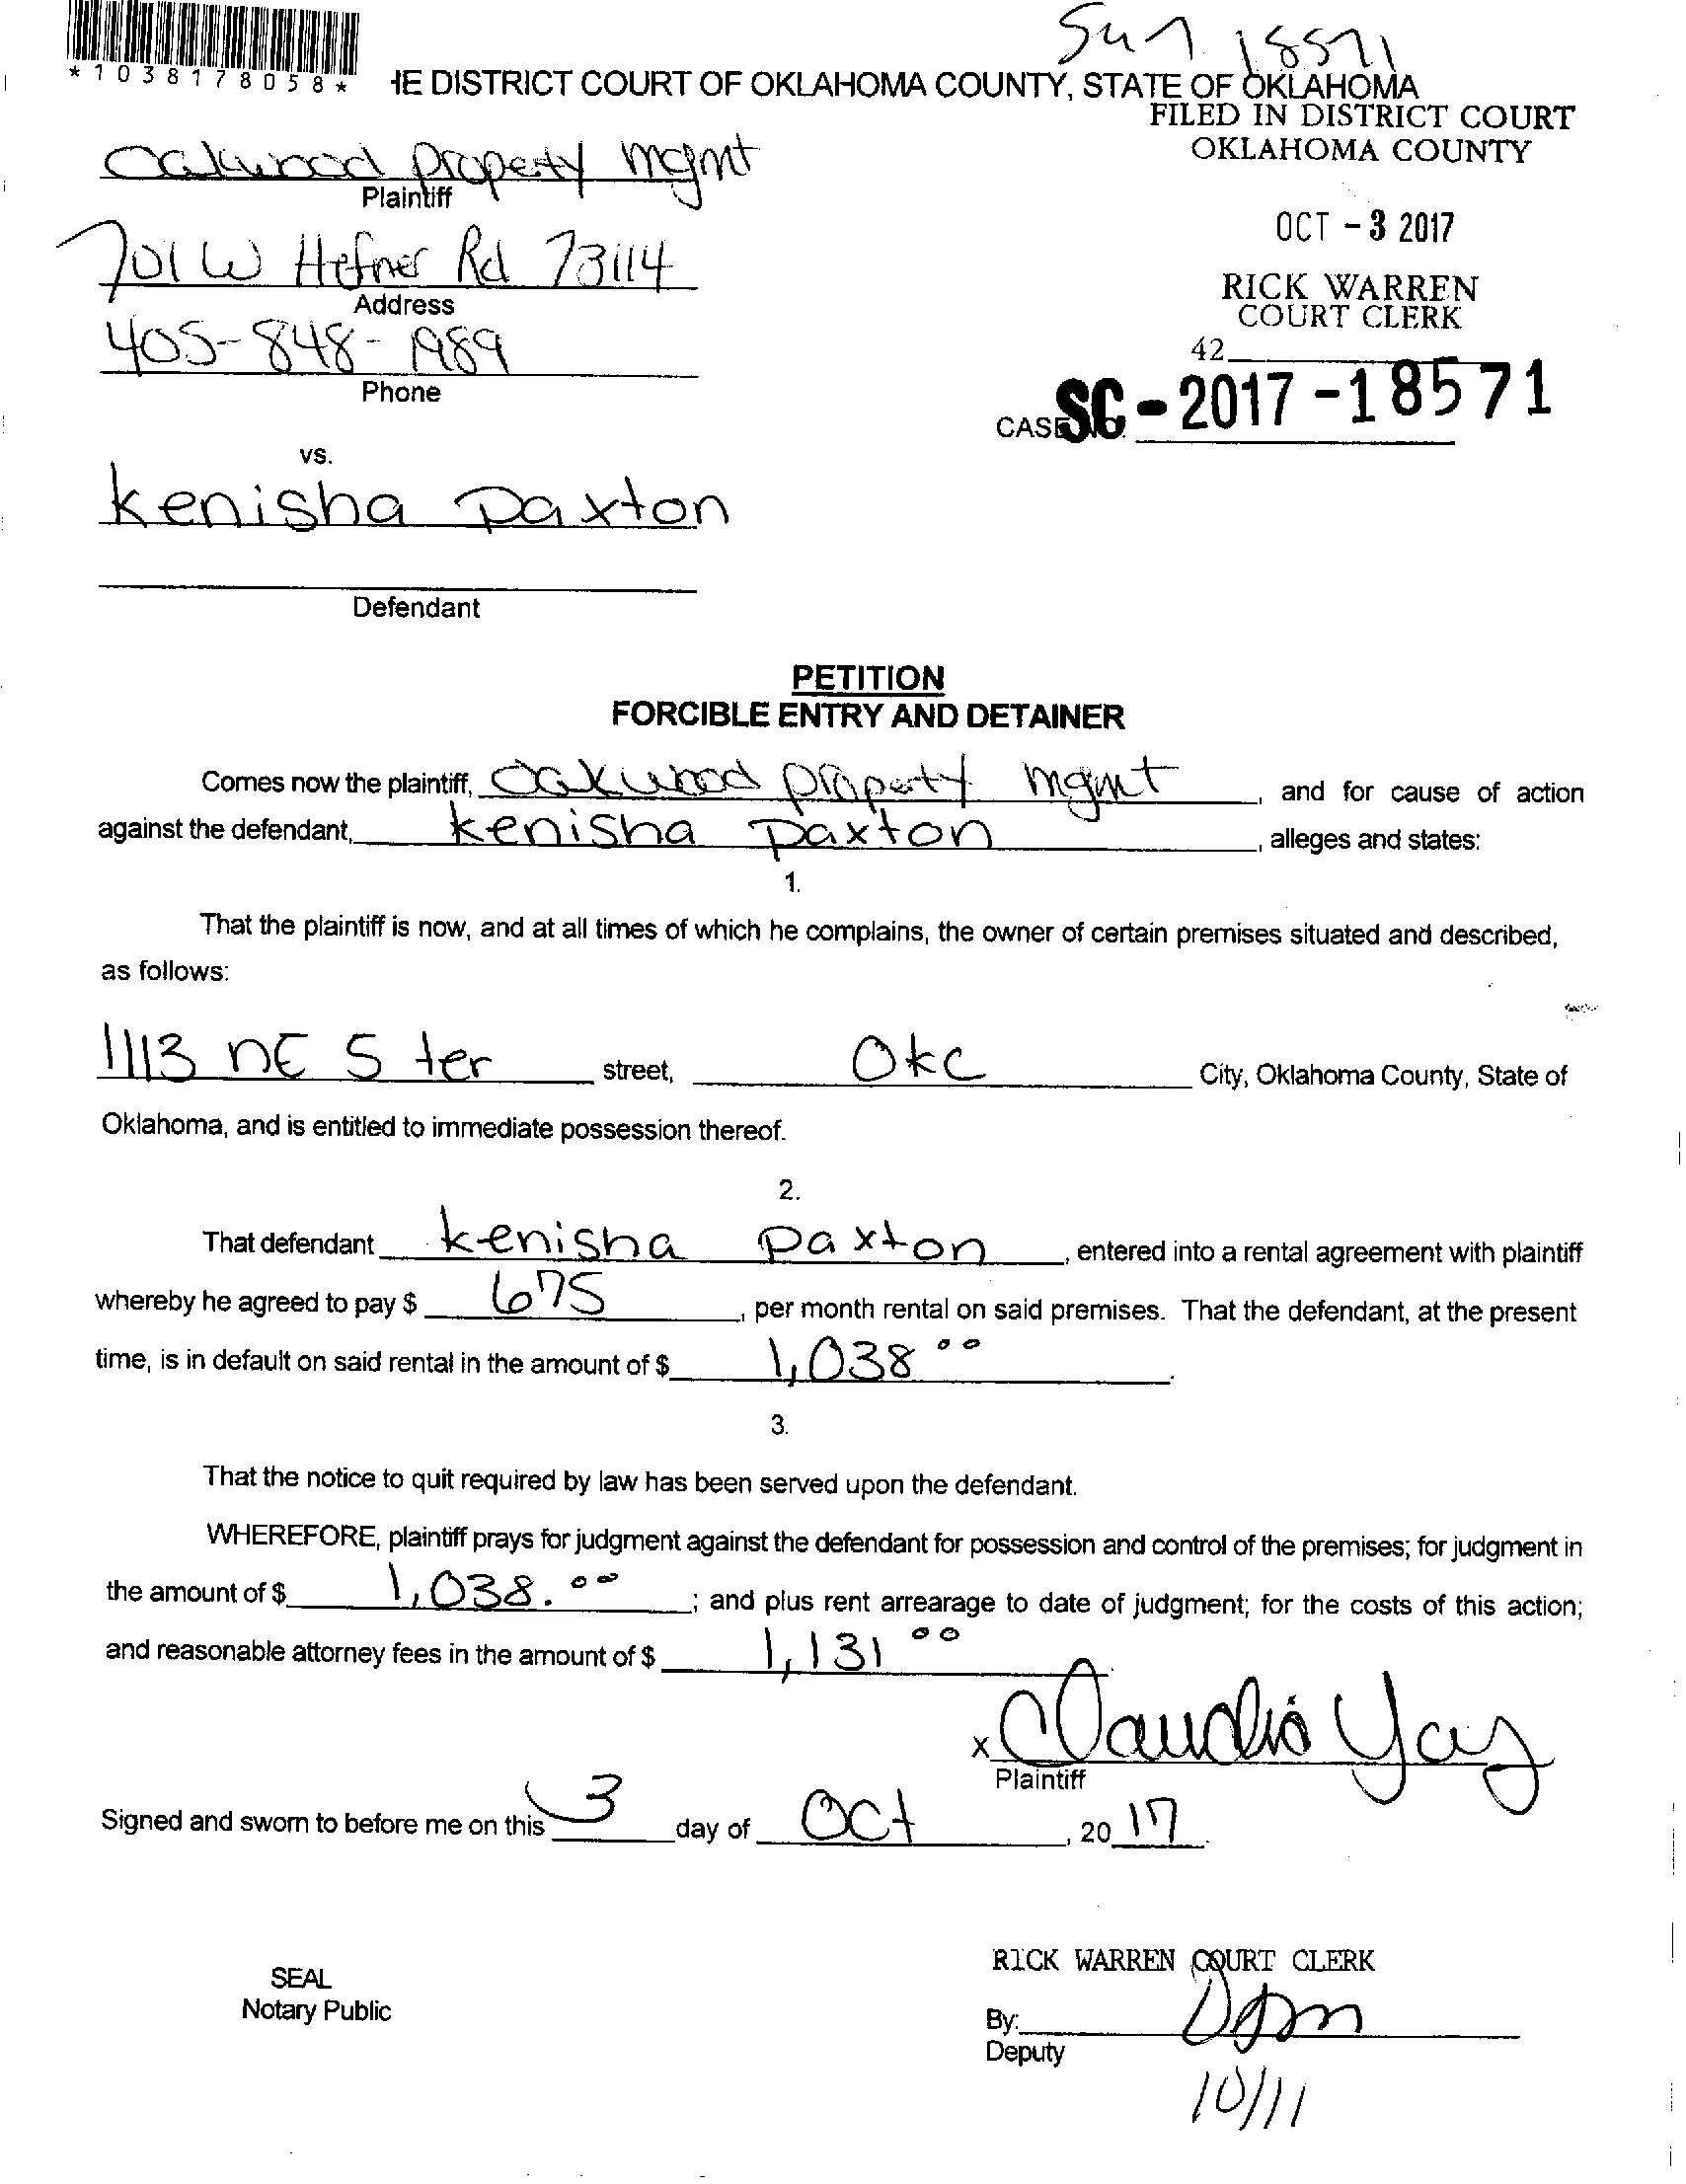 *1038178058*
HE DISTRICT COURT OF OKLAHOMA COUNTY, STATE OF OKLAHOMA
FILED IN DISTRICT COURT
OKLAHOMA COUNTY
Oakwood Property Mgmt
Plaintiff
OCT - 3 2017
701 W Hefner Rd 73114
Address
RICK WARREN
COURT CLERK
405-848-1989
Phone
42
CASE NO. SC - 2017 - 18571
vs.
Kenisha Paxton
Defendant
PETITION
FORCIBLE ENTRY AND DETAINER
Comes now the plaintiff, Oakwood Property Mgmt, and for cause of action
against the defendant, Kenisha Paxton, alleges and states:
1.
That the plaintiff is now, and at all times of which he complains, the owner of certain premises situated and described,
as follows:
1113 NE 5 ter street, OKC City, Oklahoma County, State of
Oklahoma, and is entitled to immediate possession thereof.
2.
That defendant Kenisha Paxton, entered into a rental agreement with plaintiff
whereby he agreed to pay $ 675, per month rental on said premises. That the defendant, at the present
time, is in default on said rental in the amount of $ 1,038 00.
3.
That the notice to quit required by law has been served upon the defendant.
WHEREFORE, plaintiff prays for judgment against the defendant for possession and control of the premises; for judgment in
the amount of $ 1,038.00; and plus rent arrearage to date of judgment; for the costs of this action;
and reasonable attorney fees in the amount of $ 1,131 00
x Claudia
Plaintiff
Signed and sworn to before me on this 3 day of Oct, 20 17.
RICK WARREN COURT CLERK
SEAL
Notary Public
By:
Deputy
10/11